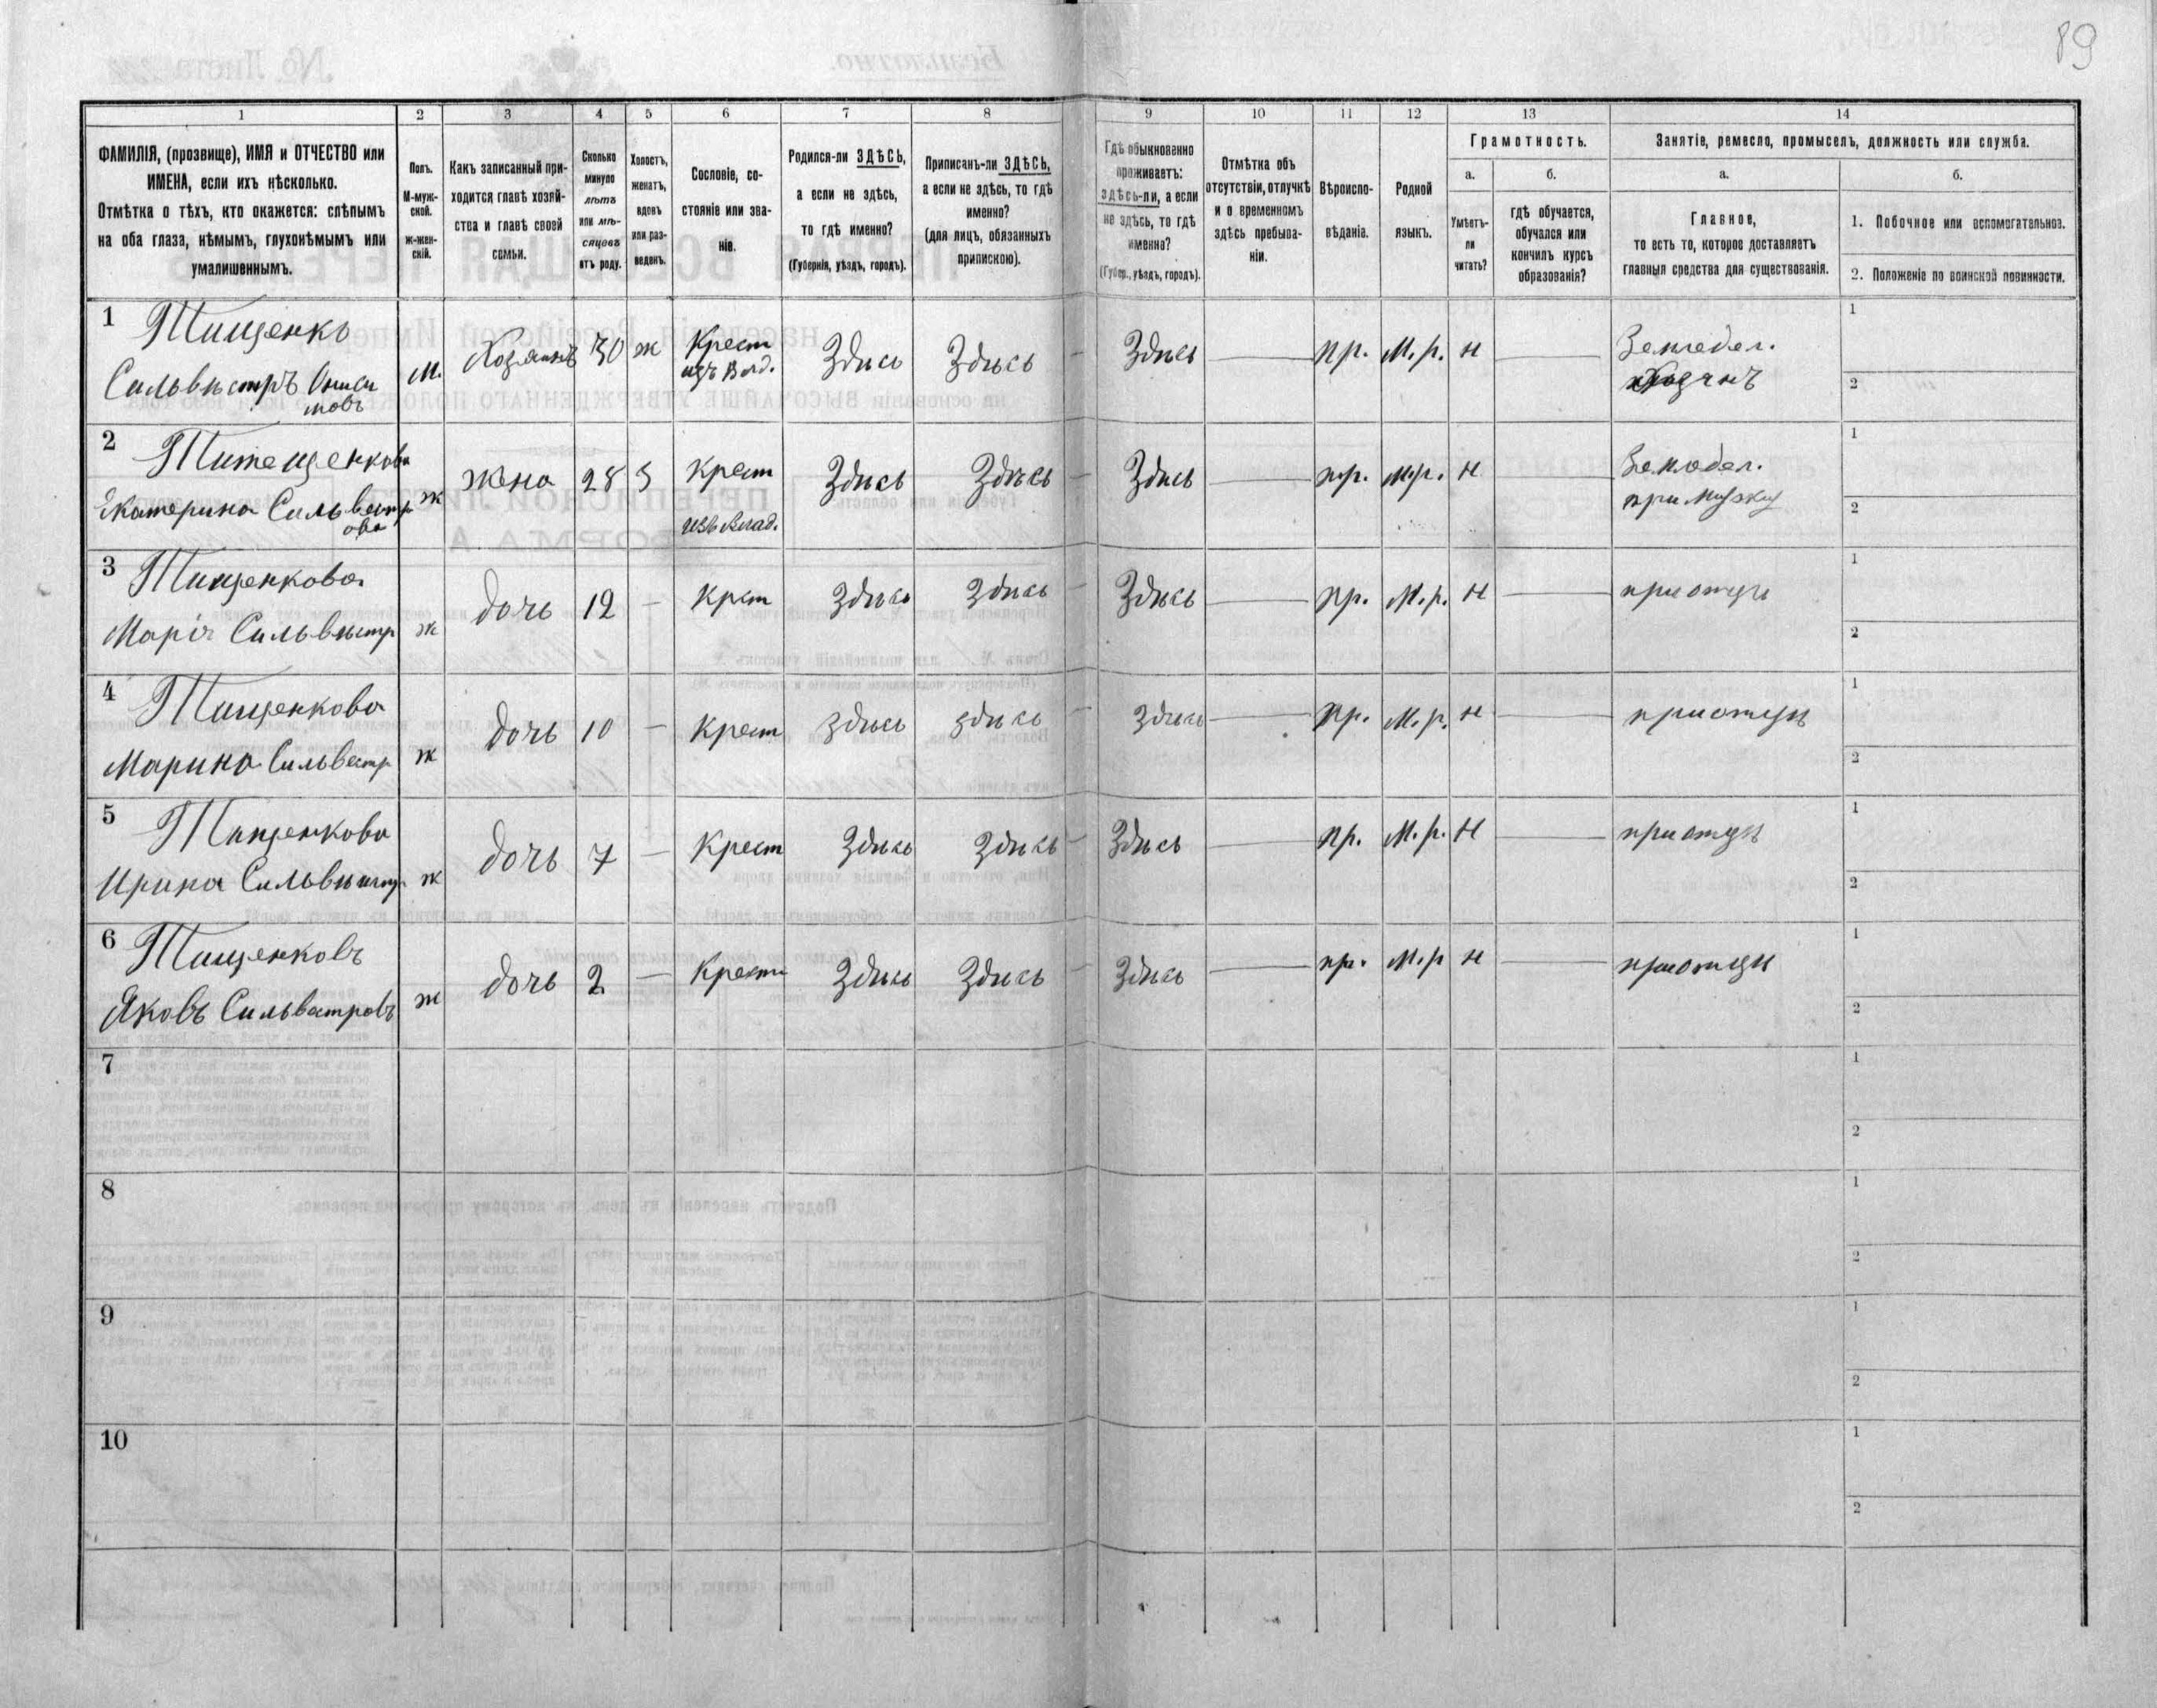 89
1 2 3 4 5 6 7 8 9 10 11 12 13 14
ФАМИЛІЯ, (прозвище), ИМЯ и ОТЧЕСТВО или
ИМЕНА, если ихъ нѣсколько.
Отмѣтка о тѣхъ, кто окажется: слѣпымъ
на оба глаза, нѣмымъ, глухонѣмымъ или
умалишеннымъ.
Полъ.
М-муж-
ской.
ж-жен-
скій.
Какъ записанный при-
ходится главѣ хозяй-
ства и главѣ своей
семьи.
Сколько
минуло
лѣтъ
или мѣ-
сяцевъ
отъ роду.
Холостъ,
женатъ,
вдовъ
или раз-
веденъ.
Сословіе, со-
стояніе или зва-
ніе.
Родился-ли ЗДѢСЬ,
а если не здѣсь,
то гдѣ именно?
(Губернія, уѣздъ, городъ).
Приписанъ-ли ЗДѢСЬ,
а если не здѣсь, то гдѣ
именно?
(для лицъ, обязанныхъ
припискою).
Гдѣ обыкновенно
проживаетъ:
здѣсь-ли, а если
не здѣсь, то гдѣ
именно?
(Губер., уѣздъ, городъ).
Отмѣтка объ
отсутствіи, отлучкѣ
и о временномъ
здѣсь пребыва-
ніи.
Вѣроиспо-
вѣданіе.
Родной
языкъ.
Грамотность.
а.
Умѣетъ-
ли
читать?
б.
гдѣ обучается,
обучался или
кончилъ курсъ
образованія?
Занятіе, ремесло, промыселъ, должность или служба.
а.
Главное,
то есть то, которое доставляетъ
главныя средства для существованія.
б.
1. Побочное или вспомогательное.
2. Положеніе по воинской повинности.
1 Тищенкъ
Сильвѣстръ Ониси
мовъ
м. Хозяинъ 30 ж Крест
изъ Влад.
Здѣсь Здѣсь Здѣсь пр. М.р. н Земледел.
хозяинъ
1
2
2 Титещенкова
Екатерина Сильвестр
ова
ж жена 28 З крест
изъ Влад.
Здѣсь Здѣсь Здѣсь пр. М.р. н Земледел.
при мужу
1
2
3 Тищенкова
Марія Сильвѣстр
ж дочь 12 — Крест Здѣсь Здѣсь Здѣсь пр. М.р. н при отцѣ
1
2
4 Тищенкова
Марина Сильвестр
ж дочь 10 — Крест здѣсь здѣсь здѣсь пр. М.р. н при отцѣ
1
2
5 Тищенкова
Ирина Сильвѣстр
ж дочь 7 — Крест Здѣсь Здѣсь Здѣсь пр. М.р. н при отцѣ
1
2
6 Тищенковъ
Яковъ Сильвестровъ
ж дочь 2 — Крест Здѣсь Здѣсь Здѣсь пр. М.р н при отцѣ
1
2
7
1
2
8
1
2
9
1
2
10
1
2